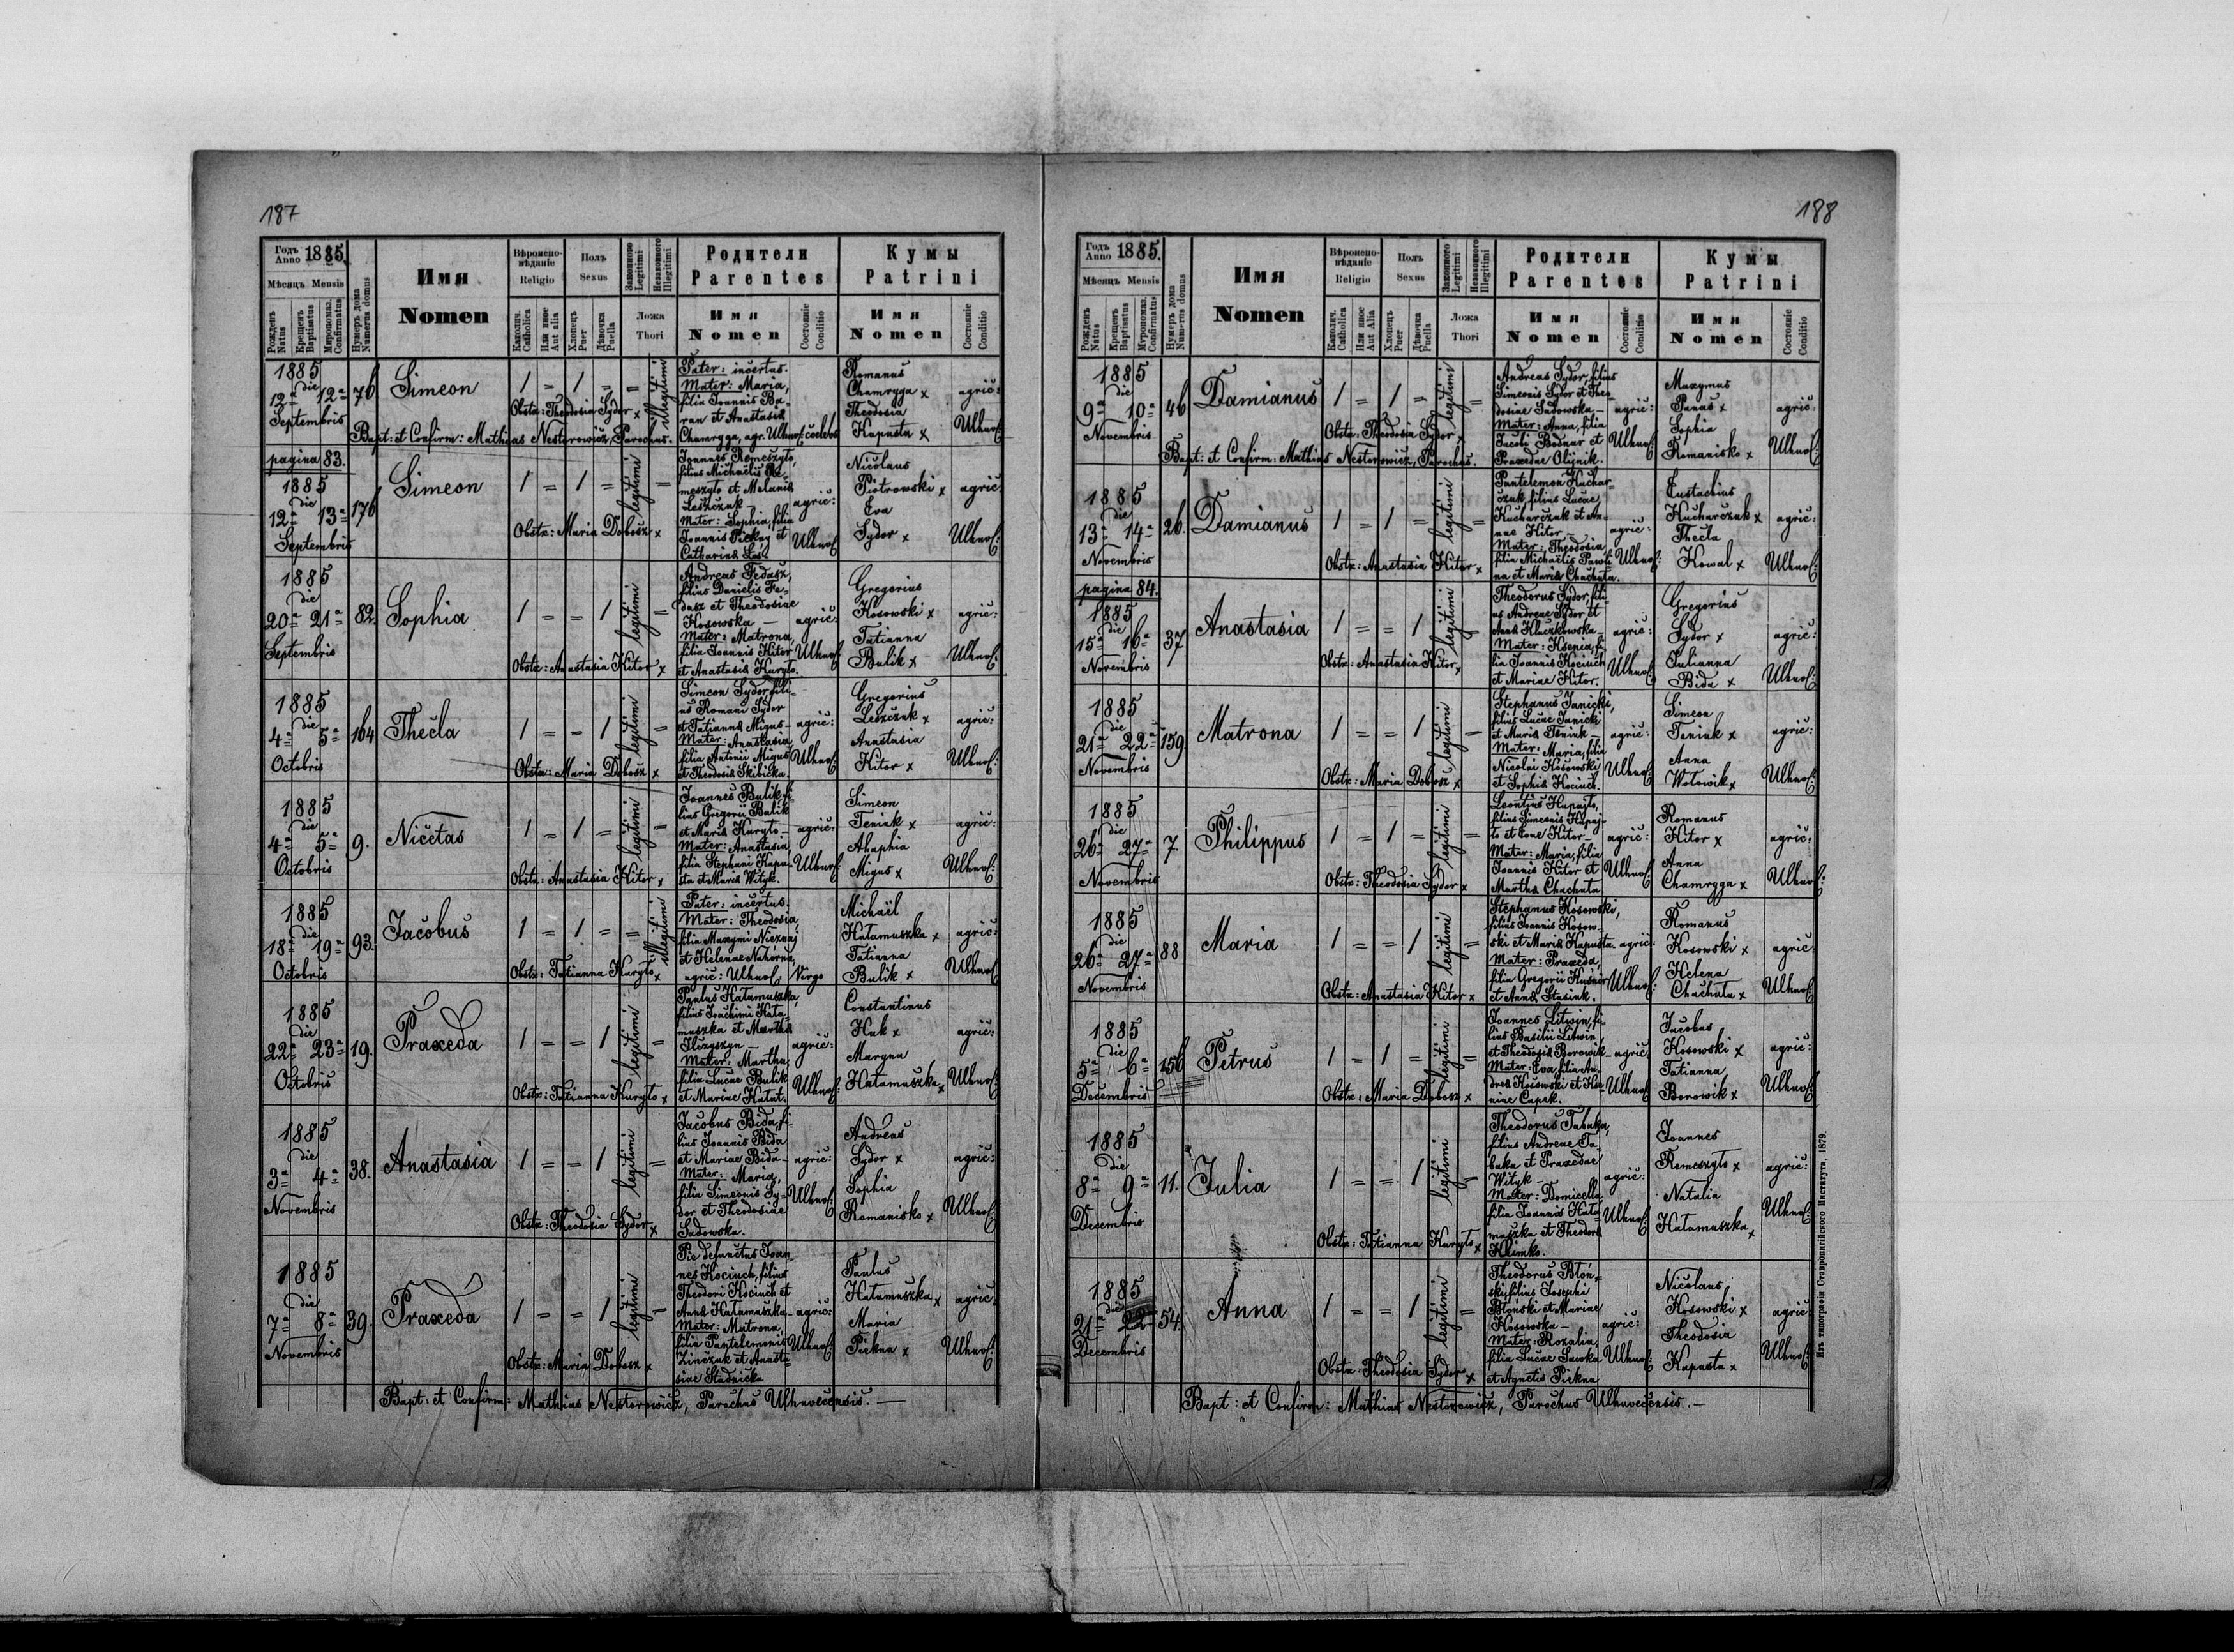 187
Годъ Anno 1885.
Мѣсяцъ Mensis
Рожденъ Natus
Крещенъ Baptisatus
Миропомаз. Confirmatus
Нумеръ дома Numerus domus
Имя
Nomen
Вѣроисповѣданіе Religio
Католич. Catholica
Или иное Aut alia
Полъ Sexus
Хлопецъ Puer
Дѣвочка Puella
Законного Legitimi
Незаконного Illegitimi
Ложа Thori
Родители
Parentes
Имя Nomen
Состояніе Conditio
Кумы
Patrini
Имя Nomen
Состояніе Conditio
1885
die
12ª 12ª 76
Septembris
Simeon
1 = 1 = =
illegitimi
Obstx: Theodosia Sydor x
Pater: incertus.
Mater: Maria,
filia Joannis Ba-
ran et Anastasiä
Chamryga, agr. Ulhnof. coelebs
Romanus
Chamryga x
Theodosia
Kapusta x
agric:
Ulhnof:
Bapt: et Confirm: Mathias Nestorowicz, Parochus.
pagina 83.
1885
die
12ª 13ª 176
Septembris
Simeon
1 = 1 =
legitimi
Obstx: Maria Dobosz x
Joannes Remeszyło,
filius Michaëlis Re-
meszyło et Melaniä
Leszczuk
Mater: Sophia, filia
Joannis Piekny et
Catharinä Los.
agric:
Ulhnof.
Nicolaus
Piotrowski x
Eva
Sydor x
agric:
Ulhnof:
1885
die
20ª 21ª 82.
Septembris
Sophia
1 = = 1
legitimi
Obstx: Anastasia Kitor x
Andreas Fedasz,
filius Danielis Fe-
dasz et Theodosiae
Kosowska —
Mater: Matrona,
filia Joannis Kitor
et Anastasiä Kuryło.
agric:
Ulhnof.
Gregorius
Kosowski x
Tatianna
Bulik x
agric:
Ulhnof:
1885
die
4ª 5ª 164
Octobris
Thecla
1 = = 1
legitimi
Obstx: Maria Dobosz x
Simeon Sydor, fili-
us Romani Sydor
et Tatiannä Migus —
Mater: Anastasia,
filia Antonii Migus
et Theodosiä Skibicka.
agric:
Ulhnof:
Gregorius
Leszczuk x
Anastasia
Kitor x
agric:
Ulhnof:
1885
die
4ª 5ª 9.
Octobris
Nicetas
1 = 1 =
legitimi
Obstx: Anastasia Kitor x
Joannes Bulik, fi-
lius Gregorii Bulik
et Mariä Kuryło —
Mater: Anastasia,
filia Stephani Kapu-
sta et Mariä Wityk.
agric:
Ulhnof:
Simeon
Feniuk x
Ahaphia
Migus x
agric:
Ulhnof:
1885
die
18ª 19ª 93.
Octobris
Jacobus
1 = 1 = =
illegitimi
Obstx: Tatianna Kuryło x
Pater: incertus.
Mater: Theodosia,
filia Maxymi Nieznaj
et Helenae Nahorna,
agric: Ulhnof: Virgo
Michaël
Hałamuszka x
Tatianna
Bulik x
agric:
Ulhnof
1885
die
22ª 23ª 19.
Octobris
Praxeda
1 = = 1
legitimi
Obstx: Tatianna Kuryło x
Paulus Hałamuszka,
filius Joachimi Hała-
muszka et Marthä
Mater: Martha,
filia Lucae Bulik
et Mariae Hałat.
agric:
Ulhnof:
Constantinus
Huk x
Maryna
Hałamuszka x
agric:
Ulhnof:
1885
die
3ª 4ª 38.
Novembris
Anastasia
1 = = 1
legitimi
Obstx: Theodosia Sydor x
Jacobus Bida, fi-
lius Joannis Bida
et Mariae Bida —
Mater: Maria,
filia Simeonis Sy-
dor et Theodosiae
Sadowska.
agric:
Ulhnof:
Andreas
Sydor x
Sophia
Romanisko x
agric:
Ulhnof:
1885
die
7ª 8ª 39.
Novembris
Praxeda
1 = = 1
legitimi
Obstx: Maria Dobosz x
Pie defunctus Joan-
nes Kociuch, filius
Theodori Kociuch et
Annä Hałamuszka —
Mater: Matrona,
filia Pantelemonis
Zinczuk et Anasta-
siae Stadnicka
agric:
Ulhnof:
Paulus
Hałamuszka x
Maria
Piekna x
agric:
Ulhnof:
Bapt: et Confirm: Mathias Nestorowicz, Parochus Ulhnovecensis. —
188
Годъ Anno 1885.
Мѣсяцъ Mensis
Рожденъ Natus
Крещенъ Baptisatus
Муропомаз. Confirmatus
Нумеръ дома Numerus domus
Имя
Nomen
Вѣроисповѣданіе Religio
Католич. Catholica
Или иное Aut Alia
Полъ Sexus
Хлопецъ Puer
Дѣвочка Puella
Законного Legitimi
Незаконного Illegitimi
Ложа Thori
Родители
Parentes
Имя Nomen
Состояніе Conditio
Кумы
Patrini
Имя Nomen
Состояніе Conditio
1885
die
9ª 10ª 46
Novembris
Damianus
1 = 1 =
legitimi
Obstx: Theodosia Sydor x
Andreas Sydor, filius
Simeonis Sydor et Theo-
dosiae Sadowska —
Mater: Anna, filia
Jacobi Bodnar et
Praxedae Olijnik.
agric:
Ulhnof:
Maxymus
Panas x
Sophia
Romanisko x
agric:
Ulhnof:
Bapt: et Confirm: Mathias Nestorowicz, Parochus.
1885
die
13ª 14ª 26.
Novembris
Damianus
1 = 1 =
legitimi
Obstx: Anastasia Kitor x
Pantelemon Kuchar-
czuk, filius Lucae
Kucharczuk et An-
nae Kitor —
Mater: Theodosia,
filia Michaëlis Pawli-
na et Mariä Chachuta.
agric:
Ulhnof:
Eustachius
Kucharczuk x
Thecla
Kowal x
agric:
Ulhnof:
pagina 84.
1885
die
15ª 16ª 37
Novembris
Anastasia
1 = = 1
legitimi
Obstx: Anastasia Kitor x
Theodorus Sydor, fili-
us Andreae Sydor et
Annä Kluczkowska —
Mater: Ksenia, fi-
lia Joannis Kociuch
et Mariae Kitor.
agric:
Ulhnof:
Gregorius
Sydor x
Julianna
Bida x
agric:
Ulhnof:
1885
die
21ª 22ª 159.
Novembris
Matrona
1 = = 1
legitimi
Obstx: Maria Dobosz x
Stephanus Janicki,
filius Lucae Janicki
et Mariä Feniuk —
Mater: Maria, filia
Nicolai Kosowski
et Sophiä Kociuch.
agric:
Ulhnof:
Simeon
Feniuk x
Anna
Wołowik x
agric:
Ulhnof:
1885
die
26ª 27ª 7
Novembris
Philippus
1 = 1 =
legitimi
Obstx: Theodosia Sydor x
Leontius Hupajło,
filius Simeonis Hupaj-
ło et Evae Kitor —
Mater: Maria, filia
Joannis Kitor et
Marthä Chachuta
agric:
Ulhnof:
Romanus
Kitor x
Anna
Chamryga x
agric:
Ulhnof:
1885
die
26ª 27ª 88
Novembris
Maria
1 = = 1
legitimi
Obstx: Anastasia Kitor x
Stephanus Kosowski,
filius Joannis Kosow-
ski et Mariä Kapusta
Mater: Praxeda,
filia Gregorii Kuśnir
et Annä Stasiuk.
agric:
Ulhnof:
Romanus
Kosowski x
Helena
Chachuta x
agric:
Ulhnof:
1885
die
5ª 6ª 156
Decembris
Petrus
1 = 1 =
legitimi
Obstx: Maria Dobosz x
Joannes Litwin, fi-
lius Basilii Litwin
et Theodosiä Borowik —
Mater: Eva, filia An-
dreä Kosowski et Kse-
niae Capek.
agric:
Ulhnof:
Jacobus
Kosowski x
Tatianna
Borowik x
agric:
Ulhnof:
1885
die
8ª 9ª 11.
Decembris
Julia
1 = = 1
legitimi
Obstx: Tatianna Kuryło x
Theodorus Tabaka,
filius Andreae Ta-
baka et Praxedae
Wityk
Mater: Domicella,
filia Joannis Hała-
muszka et Theodorä
Klimko.
agric:
Ulhnof:
Joannes
Remeszyło x
Natalia
Hałamuszka x
agric:
Ulhnof:
1885
die
21ª 22ª 54.
Decembris
Anna
1 = = 1
legitimi
Obstx: Theodosia Sydor x
Theodorus Błoń-
ski, filius Josephi
Błoński et Mariae
Kosowska —
Mater: Rozalia,
filia Lucae Sawka
et Agnetis Piekna
agric:
Ulhnof:
Nicolaus
Kosowski x
Theodosia
Kapusta x
agric:
Ulhnof:
Bapt: et Confirm: Mathias Nestorowicz, Parochus Ulhnovecensis. —
Изъ типографіи Ставропигійского Института, 1879.